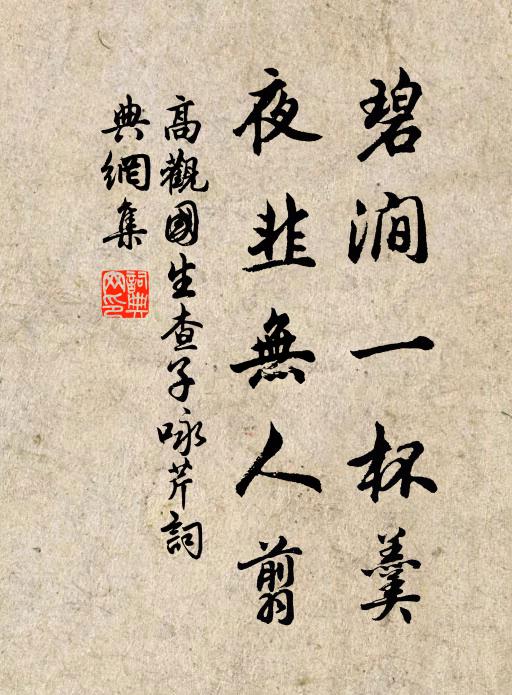 碧澗一杯羹
夜韭無人翦
高觀國生查子咏芹詞
典網集
詞典網印